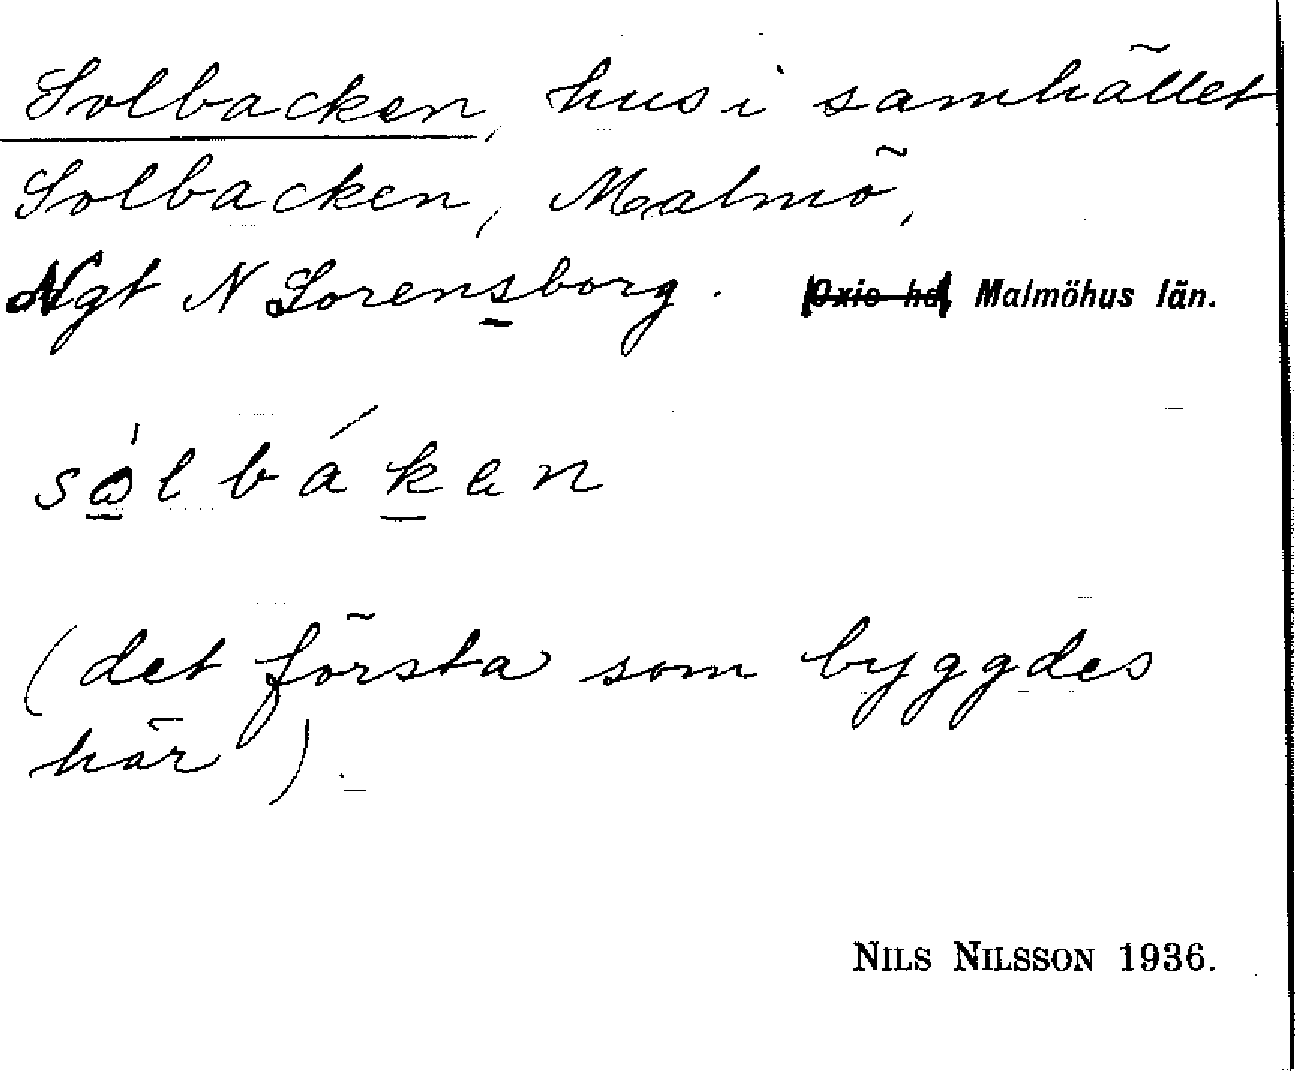 Solbacken, hus i samhället
Solbacken, Malmö,
Ngt N Lorensborg. Oxie hd, Malmöhus län.
sòlbáken
(det första som byggdes
här).
NILS NILSSON 1936.